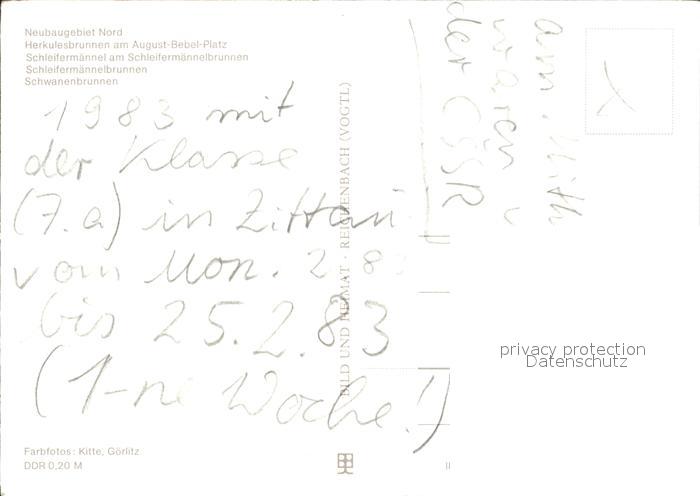 Neubaugebiet Nord
Herkulesbrunnen am August-Bebel-Platz
Schleifermännel am Schleifermännelbrunnen
Schleifermännelbrunnen
Schwanenbrunnen
1983 mit
der Klasse
(7.a) in Zittau
vom Mon. 2 83
bis 25.2.83
(1-ne Woche!)
am Mitt
waren
der CSSR
BILD UND HEIMAT · REICHENBACH (VOGTL)
privacy protection
Datenschutz
Farbfotos: Kitte, Görlitz
DDR 0,20 M